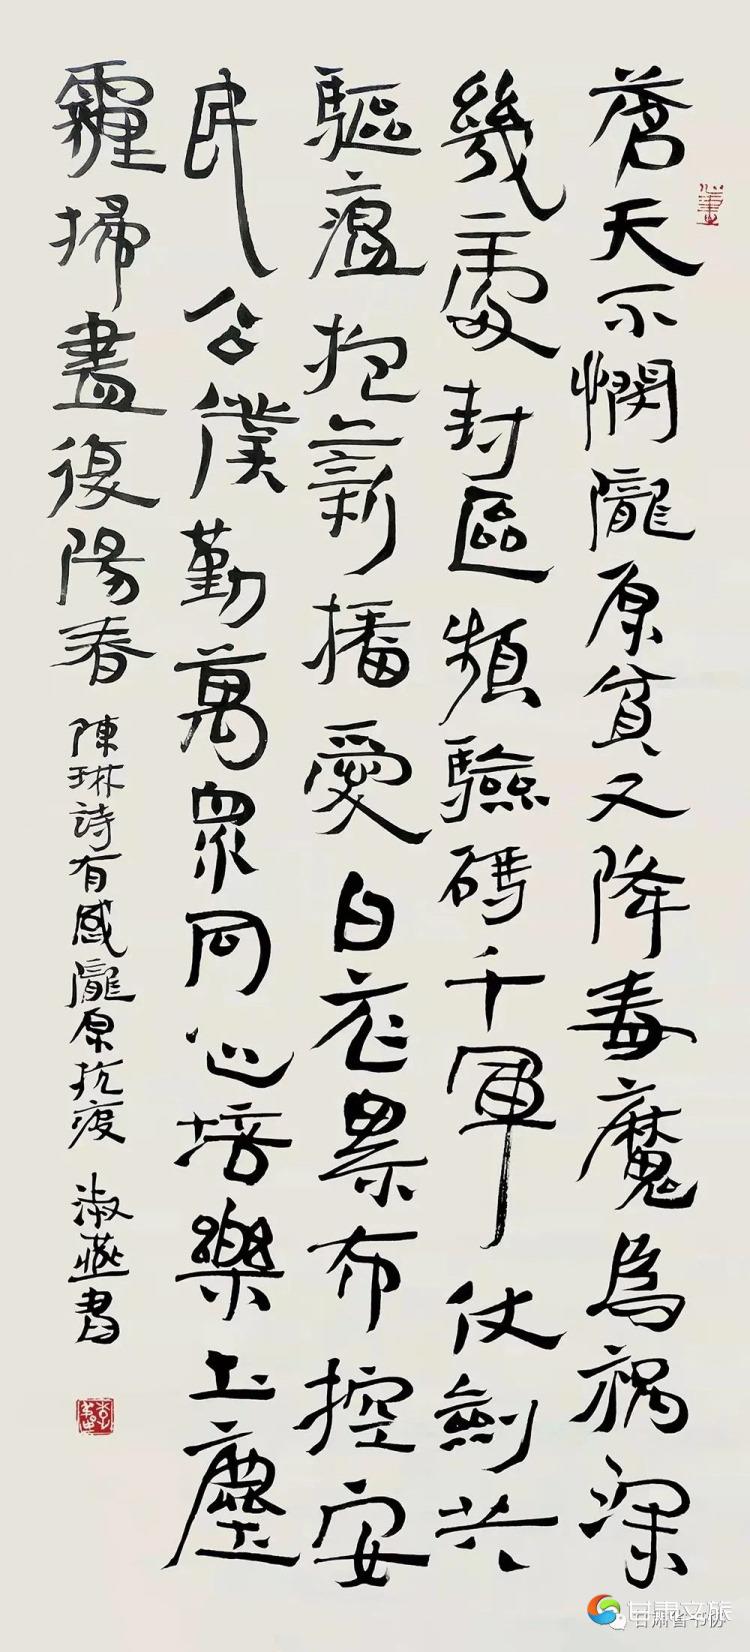 蒼天不憫隴原貧又降毒魔為禍深
幾處封區頻驗碼千軍仗劍共
驅瘟抱薪播愛白衣累布控安
民公僕勤萬眾同心培樂土塵
霾掃盡復陽春 陳琳詩有感隴原抗疫 淑燕書
甘肃文旅
甘肃省书协